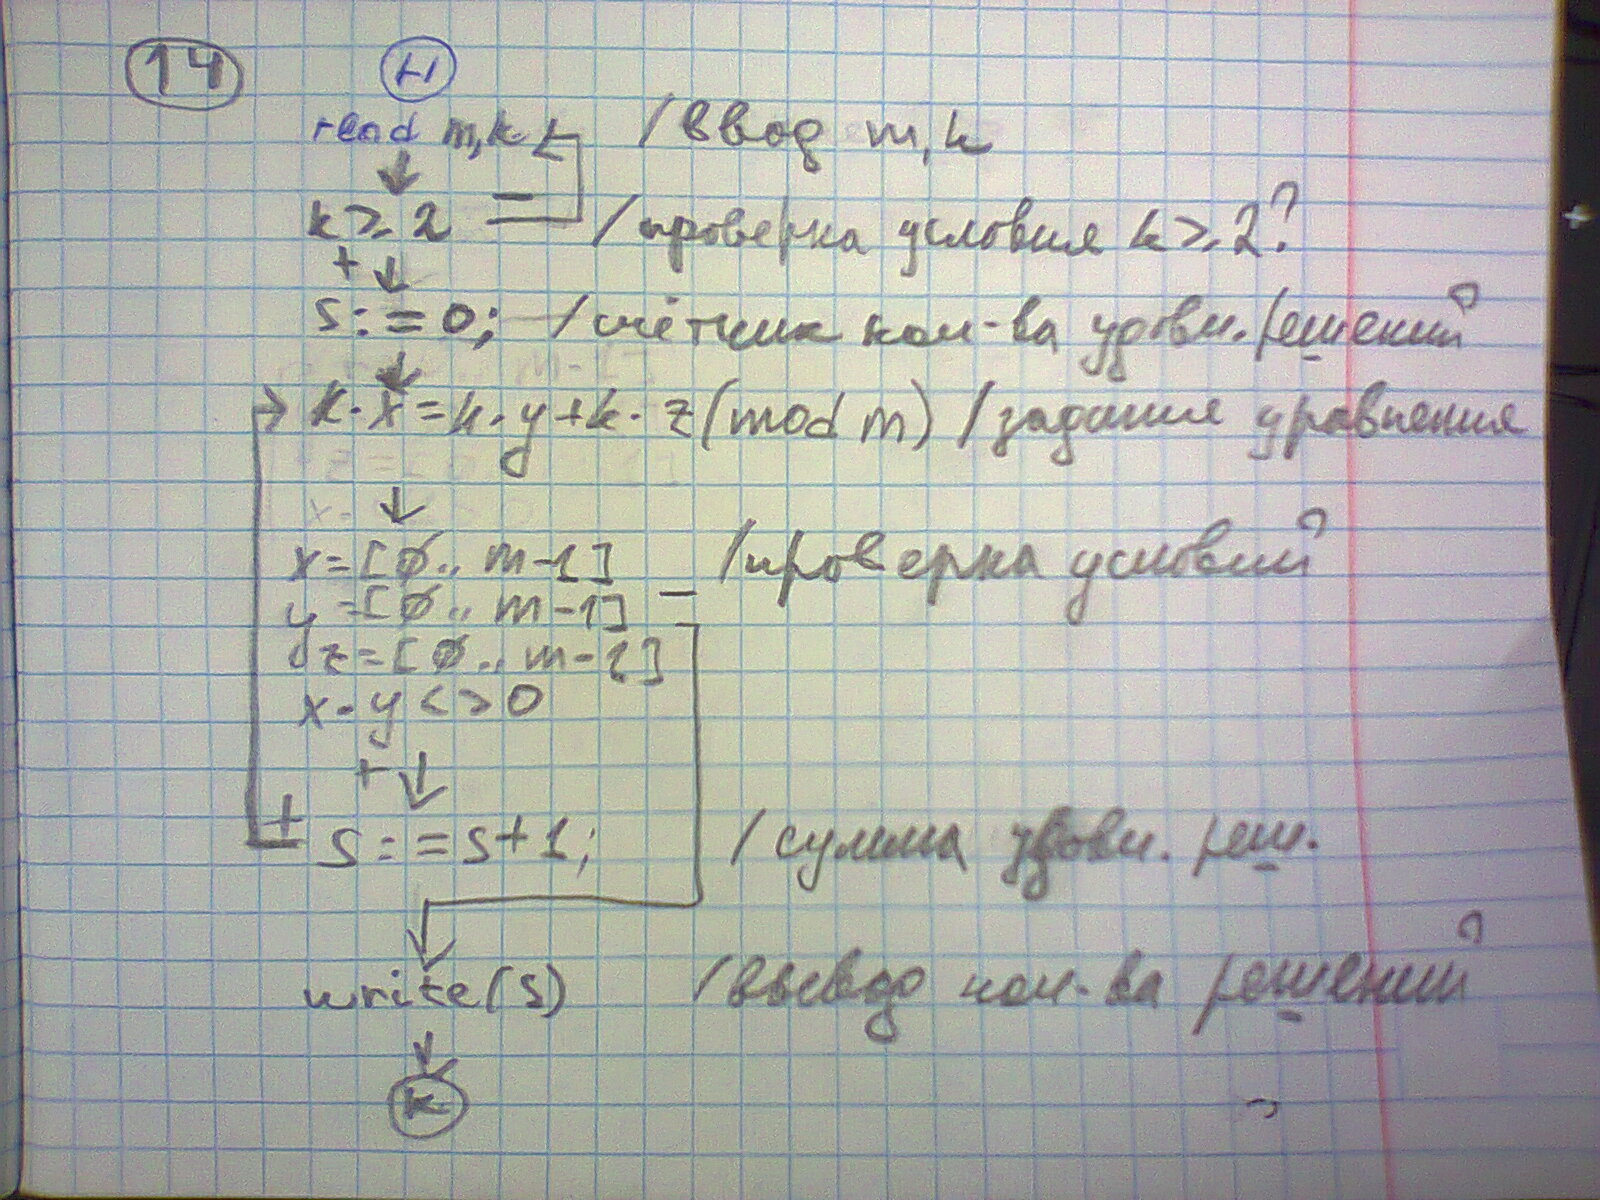 14 Н
read m,k /ввод m,k
k≥2 − /проверка условия k≥2?
+
S:=0; /счётчик кол-ва удовл. решений
k·x=k·y+k·z(mod m) /задание уравнения
x=[0.. m-1] /проверка условий
y=[0.. m-1] −
z=[0.. m-1]
x·y<>0
+
+ S:=S+1; /сумма удовл. реш.
write(S) /вывод кол-ва решений
К